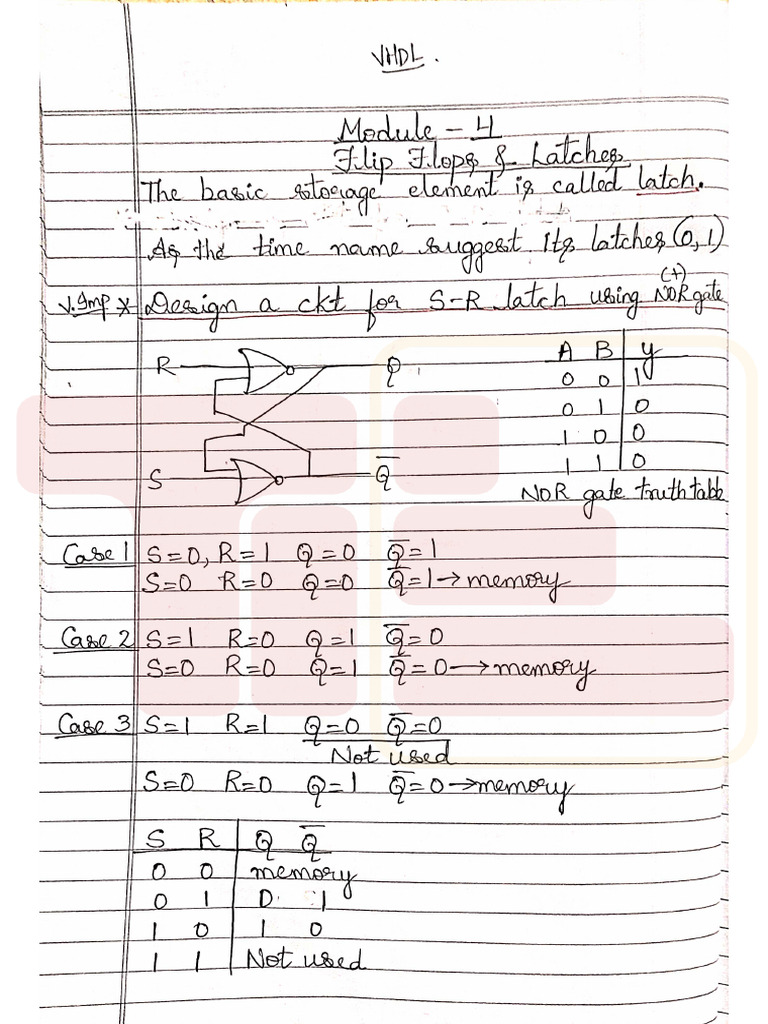 VHDL.
Module - 4
Flip Flops & Latches
The basic storage element is called latch.
As the time name suggest its latches (0, 1)
V.Imp * Design a ckt for S-R latch using NOR gate
(+)
R Q
S Q̅
A B y
0 0 1
0 1 0
1 0 0
1 1 0
NOR gate truth table
Case 1 S=0, R=1 Q=0 Q̅=1
S=0 R=0 Q=0 Q̅=1→memory
Case 2 S=1 R=0 Q=1 Q̅=0
S=0 R=0 Q=1 Q̅=0→memory
Case 3 S=1 R=1 Q=0 Q̅=0
Not used
S=0 R=0 Q=1 Q̅=0→memory
S R Q Q̅
0 0 memory
0 1 0 1
1 0 1 0
1 1 Not used